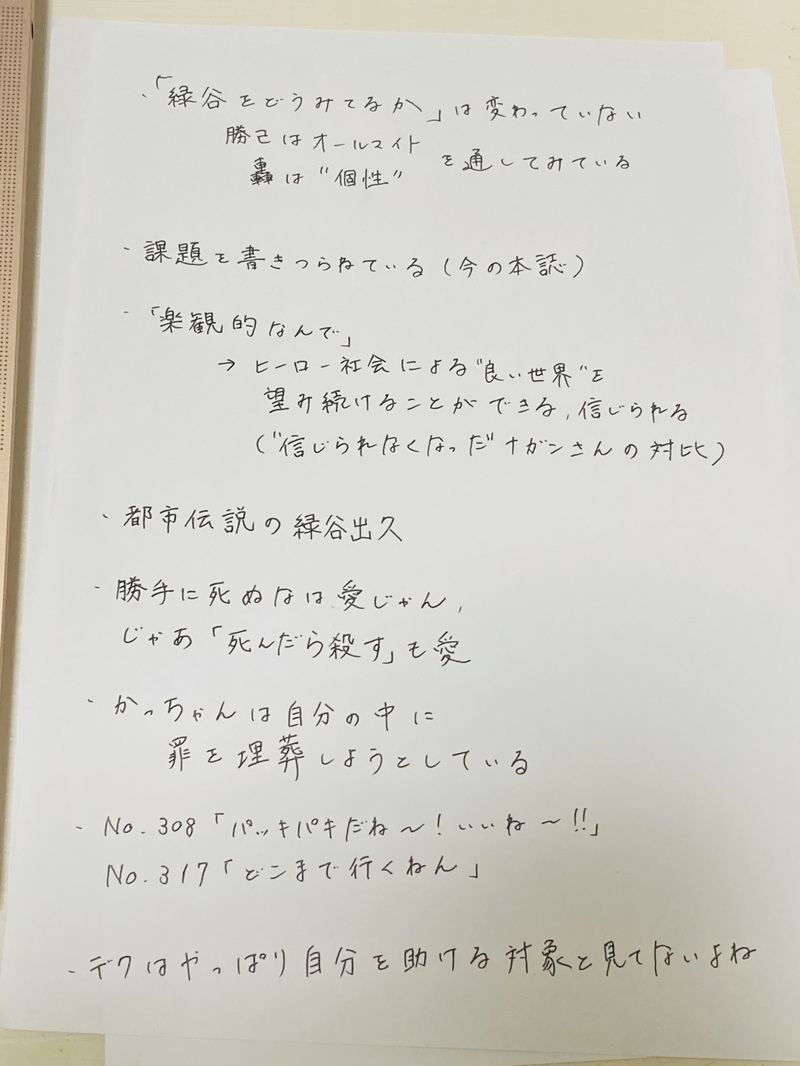 ・「緑谷をどうみてるか」は変わっていない
勝己はオールマイト
轟は"個性" を通してみている
・課題を書きつらねている(今の本誌)
・「楽観的なんで」
→ ヒーロー社会による"良い世界"を
望み続けることができる,信じられる
("信じられなくなった"ナガンさんの対比)
・都市伝説の緑谷出久
・勝手に死ぬなは愛じゃん,
じゃあ「死んだら殺す」も愛
・かっちゃんは自分の中に
罪を埋葬しようとしている
・No.308「バッキバキだね〜!いいね〜!!」
No.317「どこまで行くねん」
・デクはやっぱり自分を助ける対象と見てないよね